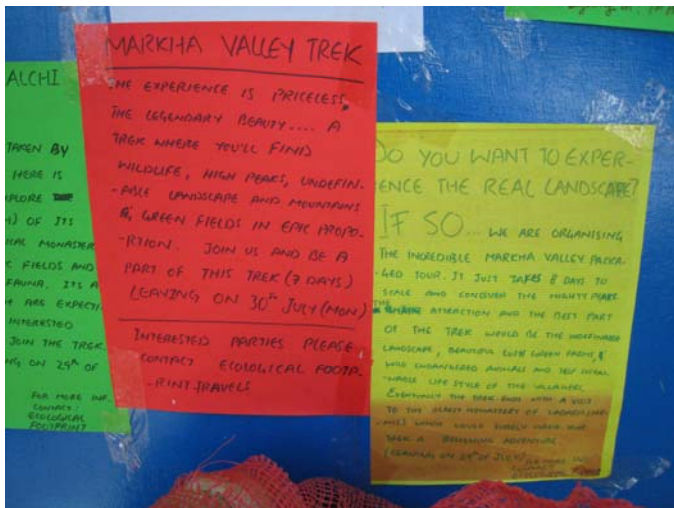 ALCHI
TAKEN BY
HERE IS
PLORE
) OF ITS
MONASTER
FIELDS AND
FAUNA. ITS A
ARE EXPECTI
INTERESTED
JOIN THE TREK.
NG ON 29th OF
FOR MORE INF.
CONTACT:
ECOLOGICAL
FOOTPRINT
MARKHA VALLEY TREK
THE EXPERIENCE IS PRICELESS.
THE LEGENDARY BEAUTY.... A
TREK WHERE YOU'LL FIND
WILDLIFE, HIGH PEAKS, UNDEFIN-
-ABLE LANDSCAPE AND MOUNTAINS
&, GREEN FIELDS IN EPIC PROPO-
-RTION. JOIN US AND BE A
PART OF THIS TREK (7 DAYS)
LEAVING ON 30th JULY (MON)
INTERESTED PARTIES PLEASE
CONTACT ECOLOGICAL FOOTP-
-RINT TRAVELS
DO YOU WANT TO EXPER-
ENCE THE REAL LANDSCAPE?
IF SO... WE ARE ORGANISING
THE INCREDIBLE MARKHA VALLEY PACKA-
-GED TOUR. IT JUST TAKES 8 DAYS TO
SCALE AND CONQUER THE MIGHTY PEAKS
THE ATTRACTION AND THE BEST PART
OF THE TREK WOULD BE THE UNDEFINABLE
LANDSCAPE, BEAUTIFUL LUSH GREEN FARMS, &
WILD ENDANGERED ANIMALS AND
LIFE STYLE OF THE VILLAGERS.
EVENTUALLY THE TREK ENDS WITH A VISIT
TO THE MONASTERY OF LADAKH
WHICH WOULD SURELY MAKE THE
TREK A ADVENTURE
(LEAVING ON 29th OF JULY)
FOR MORE
CONTACT
ECOLOGICAL